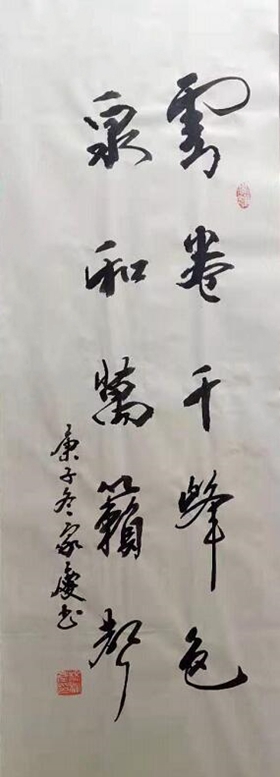 雲卷千峰色
泉和萬籟聲
庚子冬家慶书